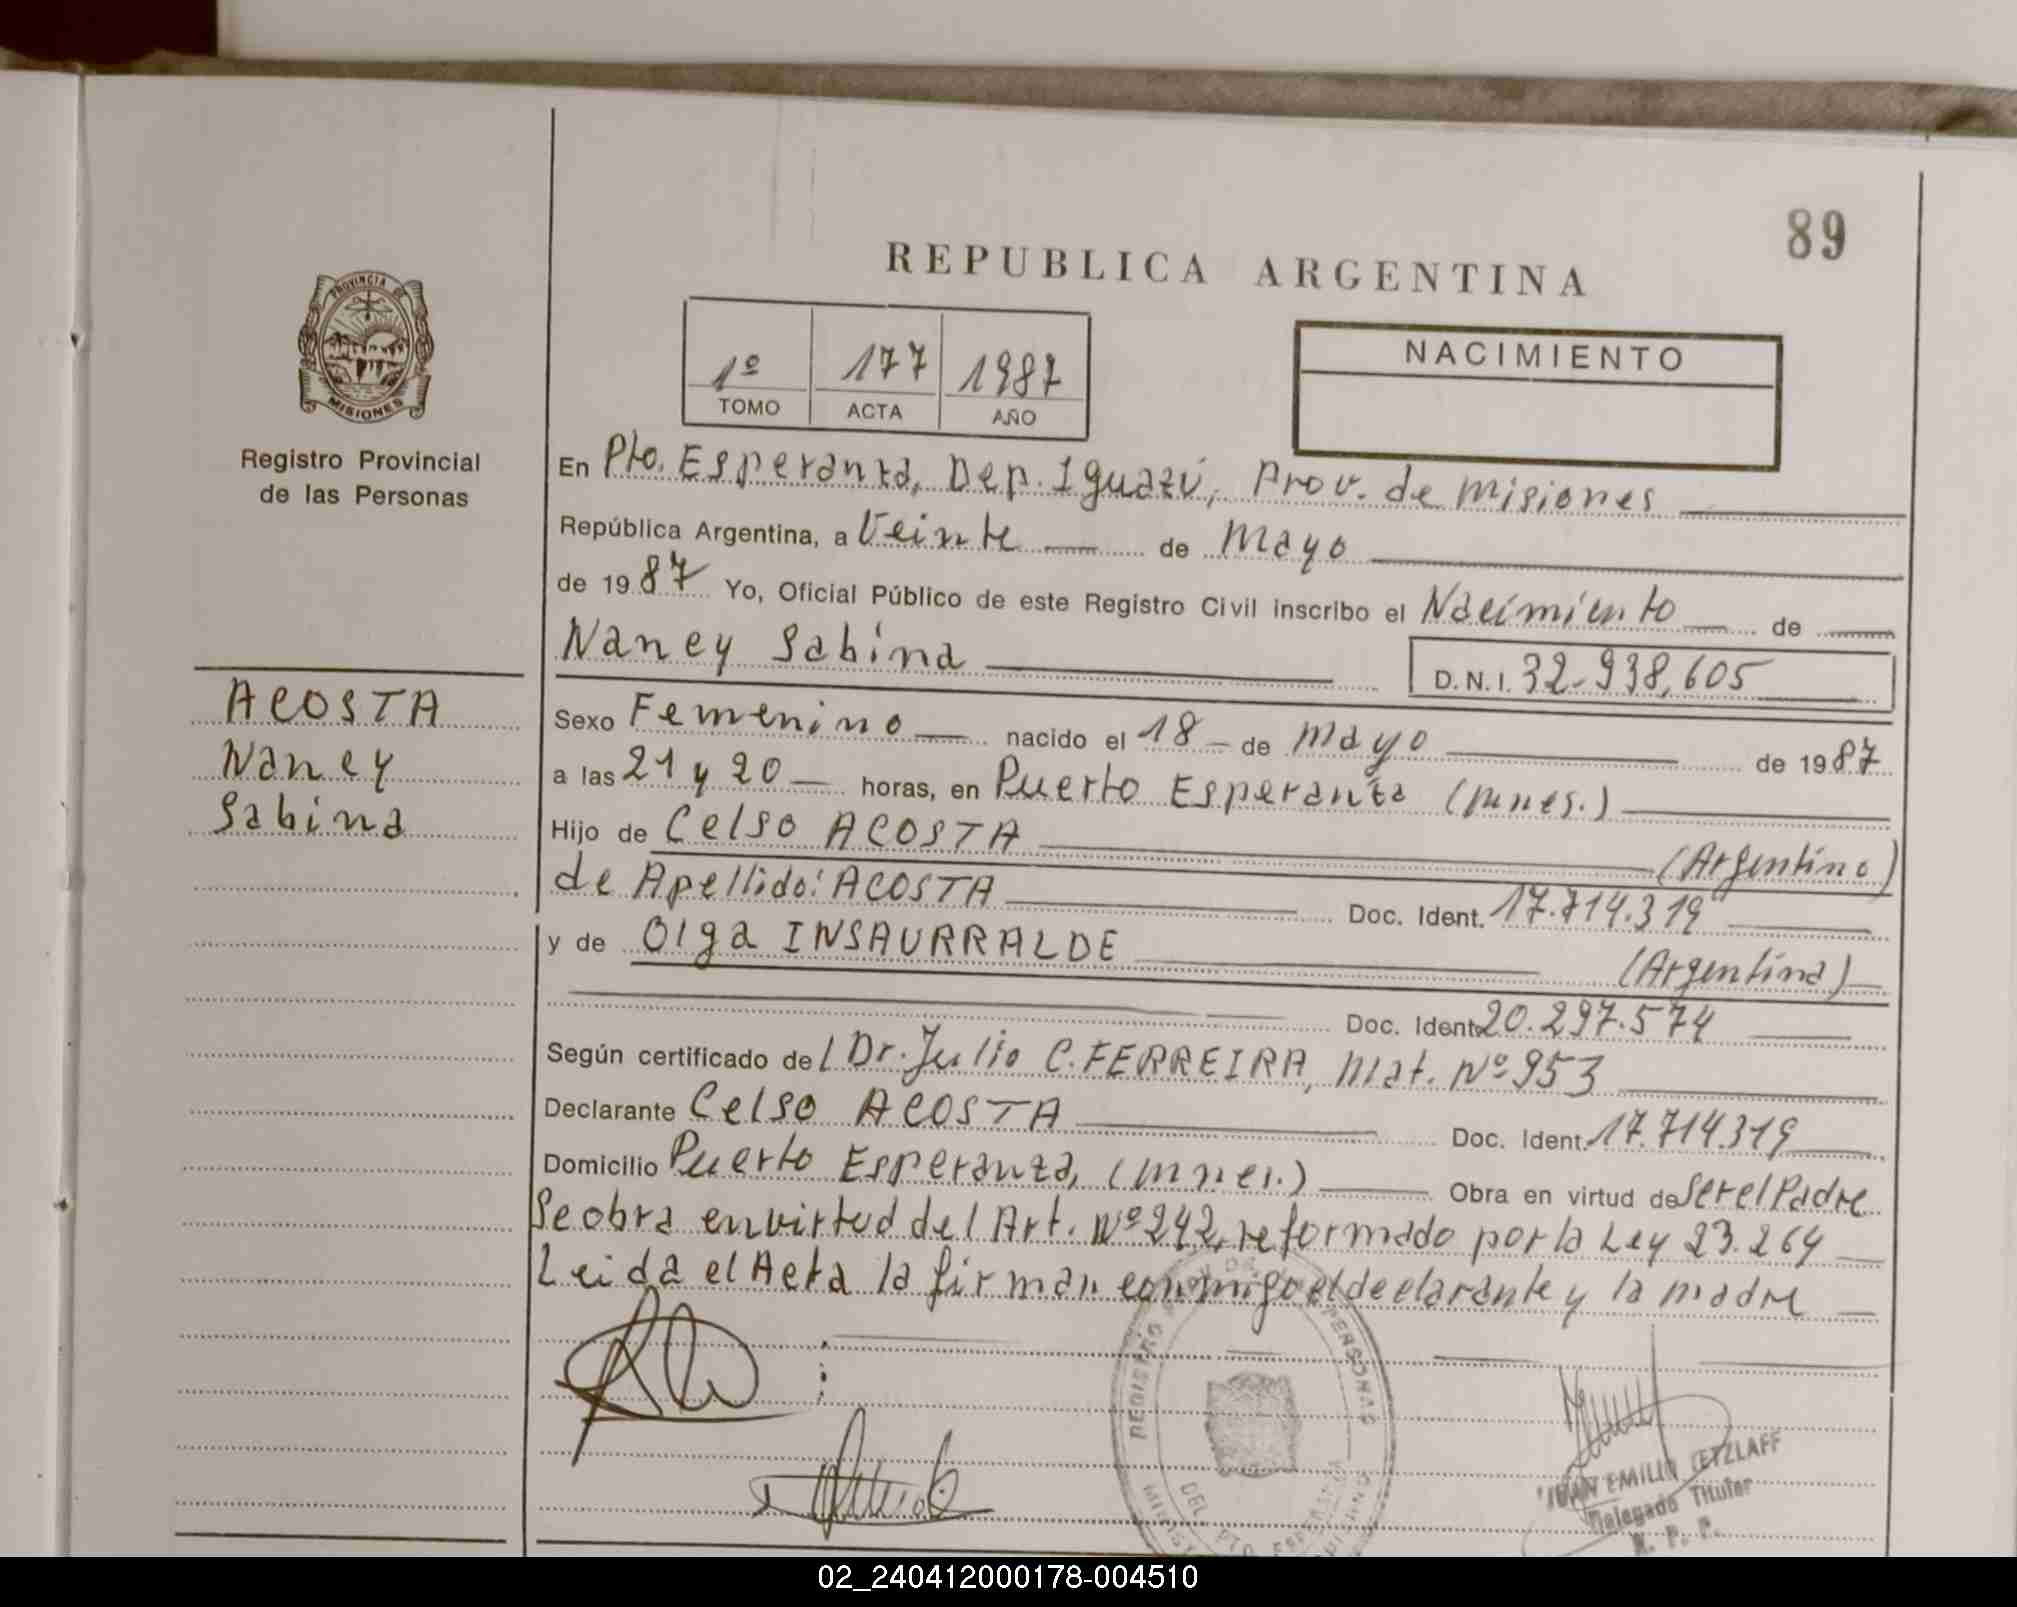 89
REPUBLICA ARGENTINA
PROVINCIA DE
MISIONES
Registro Provincial
de las Personas
1º 177 1987
TOMO ACTA AÑO
NACIMIENTO
En Pto. Esperanza, Dep. Iguazú, Prov. de Misiones
República Argentina, a Veinte de Mayo
de 1987 Yo, Oficial Público de este Registro Civil inscribo el Nacimiento de
Nancy Sabina D.N.I. 32.938.605
ACOSTA
Nancy
Sabina
Sexo Femenino nacido el 18 de Mayo de 1987
a las 21 y 20 horas, en Puerto Esperanza (Mnes.)
Hijo de Celso ACOSTA (Argentino)
de Apellido: ACOSTA Doc. Ident. 17.714.319
y de Olga INSAURRALDE (Argentina)
Doc. Ident. 20.297.574
Según certificado del Dr. Julio C. FERREIRA, Mat. Nº 953
Declarante Celso ACOSTA Doc. Ident. 17.714.319
Domicilio Puerto Esperanza, (Mnes.) Obra en virtud de Ser el Padre
Se obra en virtud del Art. Nº 242, reformado por la Ley 23.264
Leida el Acta la firman conmigo el declarante y la madre
REGISTRO PERSONAS
DEL PTO
Delegado Titular
R. P. P.
02_240412000178-004510